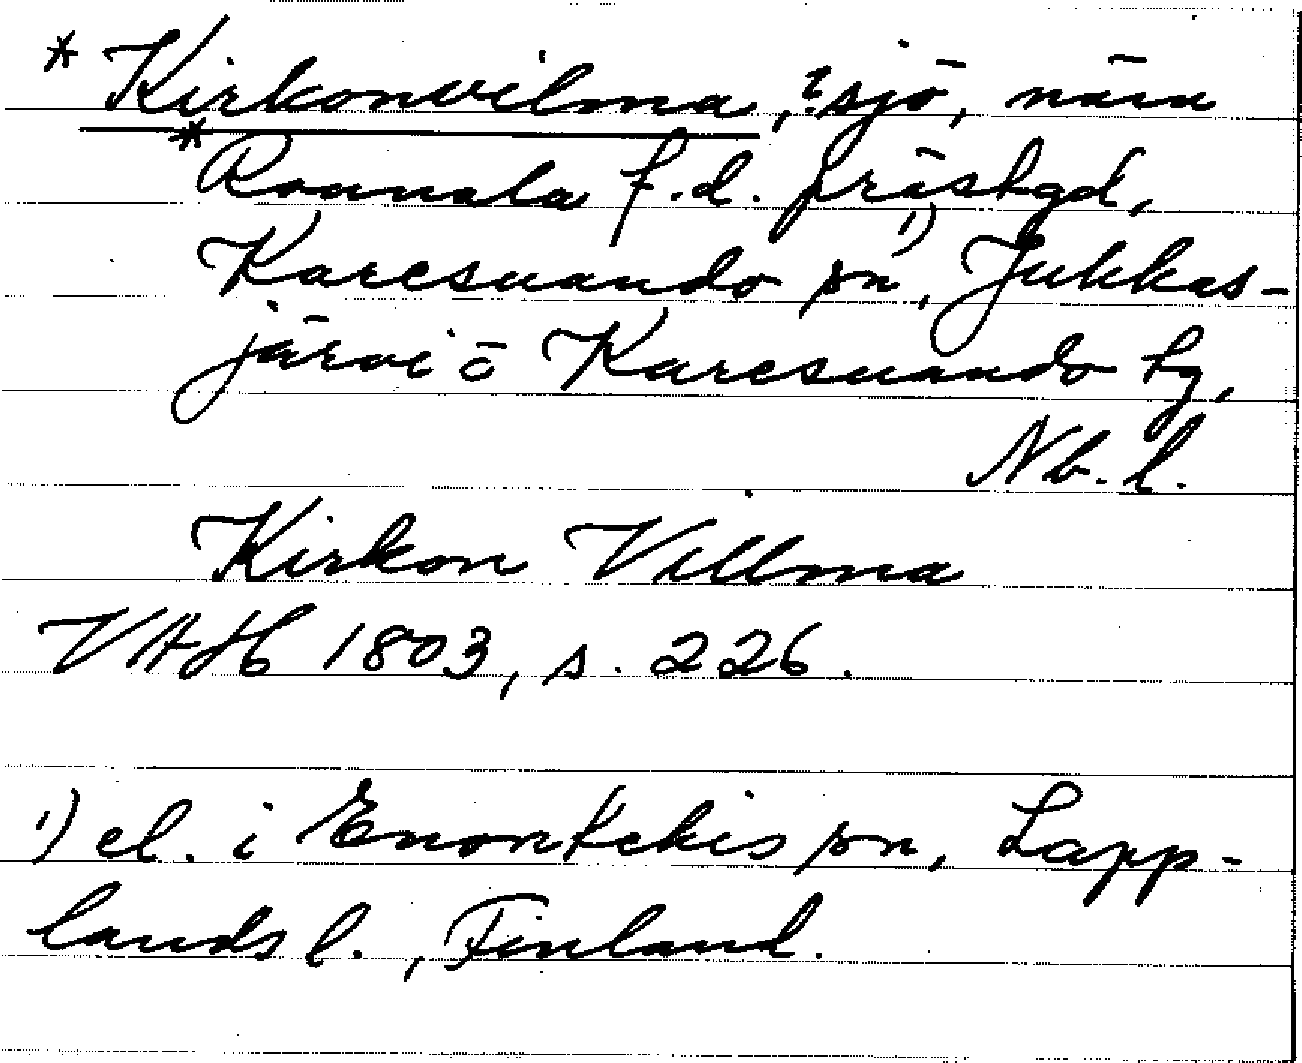 * Kirkonvilma, ? sjö, nära
* Rounala f.d. prästgd,
Karesuando sn ¹⁾, Jukkas-
järvi o Karesuando tg,
Nb. l.
Kirkon Villma
VAH 1803, s. 226.
¹⁾ el. i Enontekis sn, Lapp-
lands l., Finland.